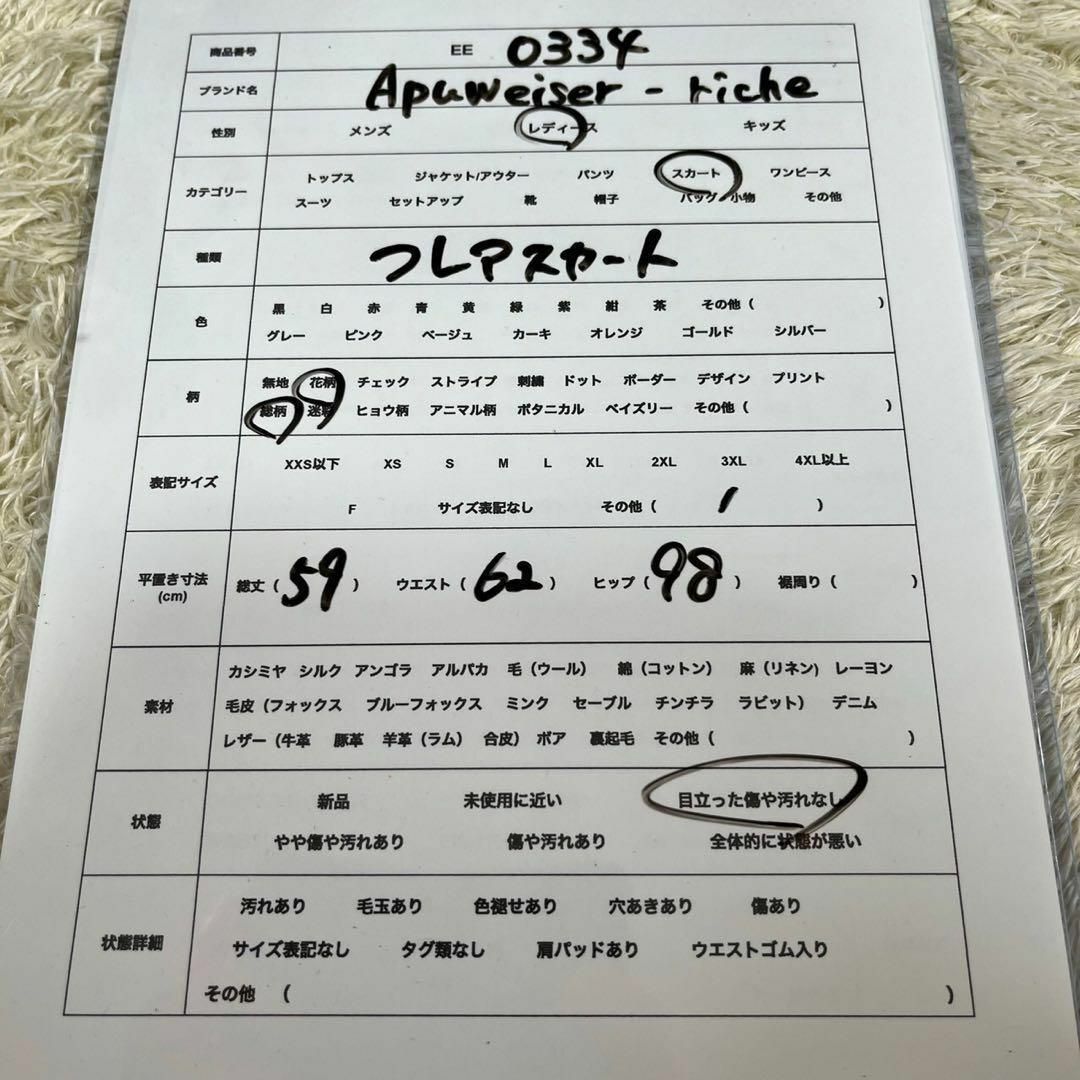 商品番号 EE 0334
ブランド名 Apuweiser - riche
性別 メンズ レディース キッズ
カテゴリー トップス ジャケット/アウター パンツ スカート ワンピース
スーツ セットアップ 靴 帽子 バッグ 小物 その他
種類 フレアスカート
色 黒 白 赤 青 黄 緑 紫 紺 茶 その他（ ）
グレー ピンク ベージュ カーキ オレンジ ゴールド シルバー
柄 無地 花柄 チェック ストライプ 刺繍 ドット ボーダー デザイン プリント
総柄 迷彩 ヒョウ柄 アニマル柄 ボタニカル ペイズリー その他（ ）
表記サイズ XXS以下 XS S M L XL 2XL 3XL 4XL以上
F サイズ表記なし その他（ 1 ）
平置き寸法 (cm) 総丈（ 59 ） ウエスト（ 62 ） ヒップ（ 98 ） 裾周り（ ）
素材 カシミヤ シルク アンゴラ アルパカ 毛（ウール） 綿（コットン） 麻（リネン） レーヨン
毛皮（フォックス ブルーフォックス ミンク セーブル チンチラ ラビット） デニム
レザー（牛革 豚革 羊革（ラム） 合皮） ボア 裏起毛 その他（ ）
状態 新品 未使用に近い 目立った傷や汚れなし
やや傷や汚れあり 傷や汚れあり 全体的に状態が悪い
状態詳細 汚れあり 毛玉あり 色褪せあり 穴あきあり 傷あり
サイズ表記なし タグ類なし 肩パッドあり ウエストゴム入り
その他 （ ）